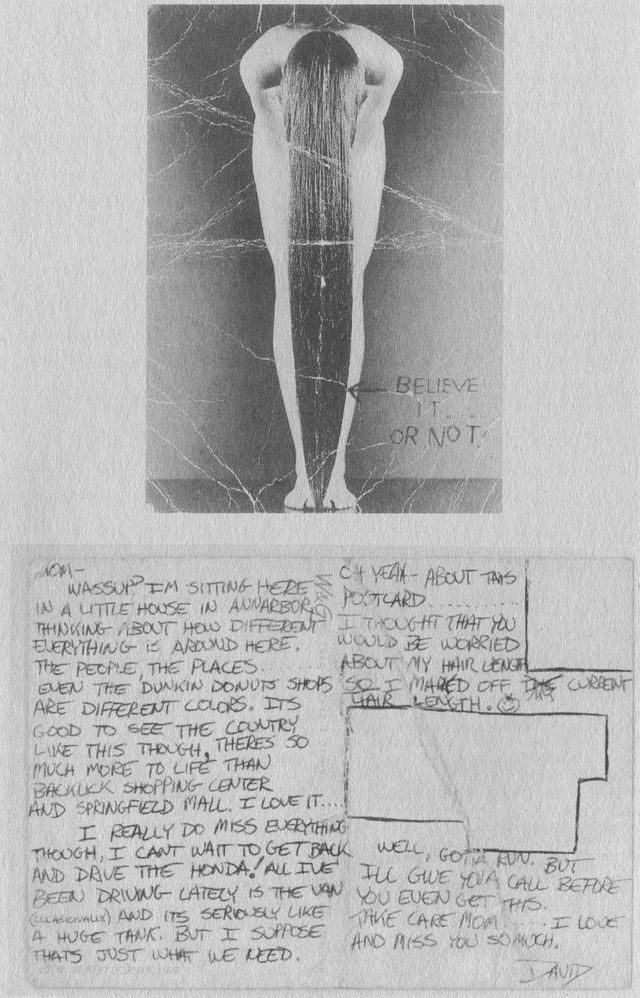 BELIEVE
IT.....
OR NOT!
MOM-
WASSUP? I'M SITTING HERE
IN A LITTLE HOUSE IN ANNARBOR,
THINKING ABOUT HOW DIFFERENT
EVERYTHING IS AROUND HERE.
THE PEOPLE, THE PLACES..........
EVEN THE DUNKIN DONUTS SHOPS
ARE DIFFERENT COLORS. ITS
GOOD TO SEE THE COUNTRY
LIKE THIS THOUGH, THERES SO
MUCH MORE TO LIFE THAN
BACKLICK SHOPPING CENTER
AND SPRINGFIELD MALL. I LOVE IT....
I REALLY DO MISS EVERYTHING
THOUGH, I CANT WAIT TO GET BACK
AND DRIVE THE HONDA! ALL I'VE
BEEN DRIVING LATELY IS THE VAN
(OCCASIONALLY) AND ITS SERIOUSLY LIKE
A HUGE TANK. BUT I SUPPOSE
THATS JUST WHAT WE NEED.
OH YEAH- ABOUT THIS
POSTCARD............
I THOUGHT THAT YOU
WOULD BE WORRIED
ABOUT MY HAIR LENGTH
SO I MARKED OFF MY CURRENT
HAIR LENGTH.
WELL, GOTTA RUN. BUT
I'LL GIVE YOU A CALL BEFORE
YOU EVEN GET THIS.
TAKE CARE MOM.....I LOVE
AND MISS YOU SO MUCH.
DAVID